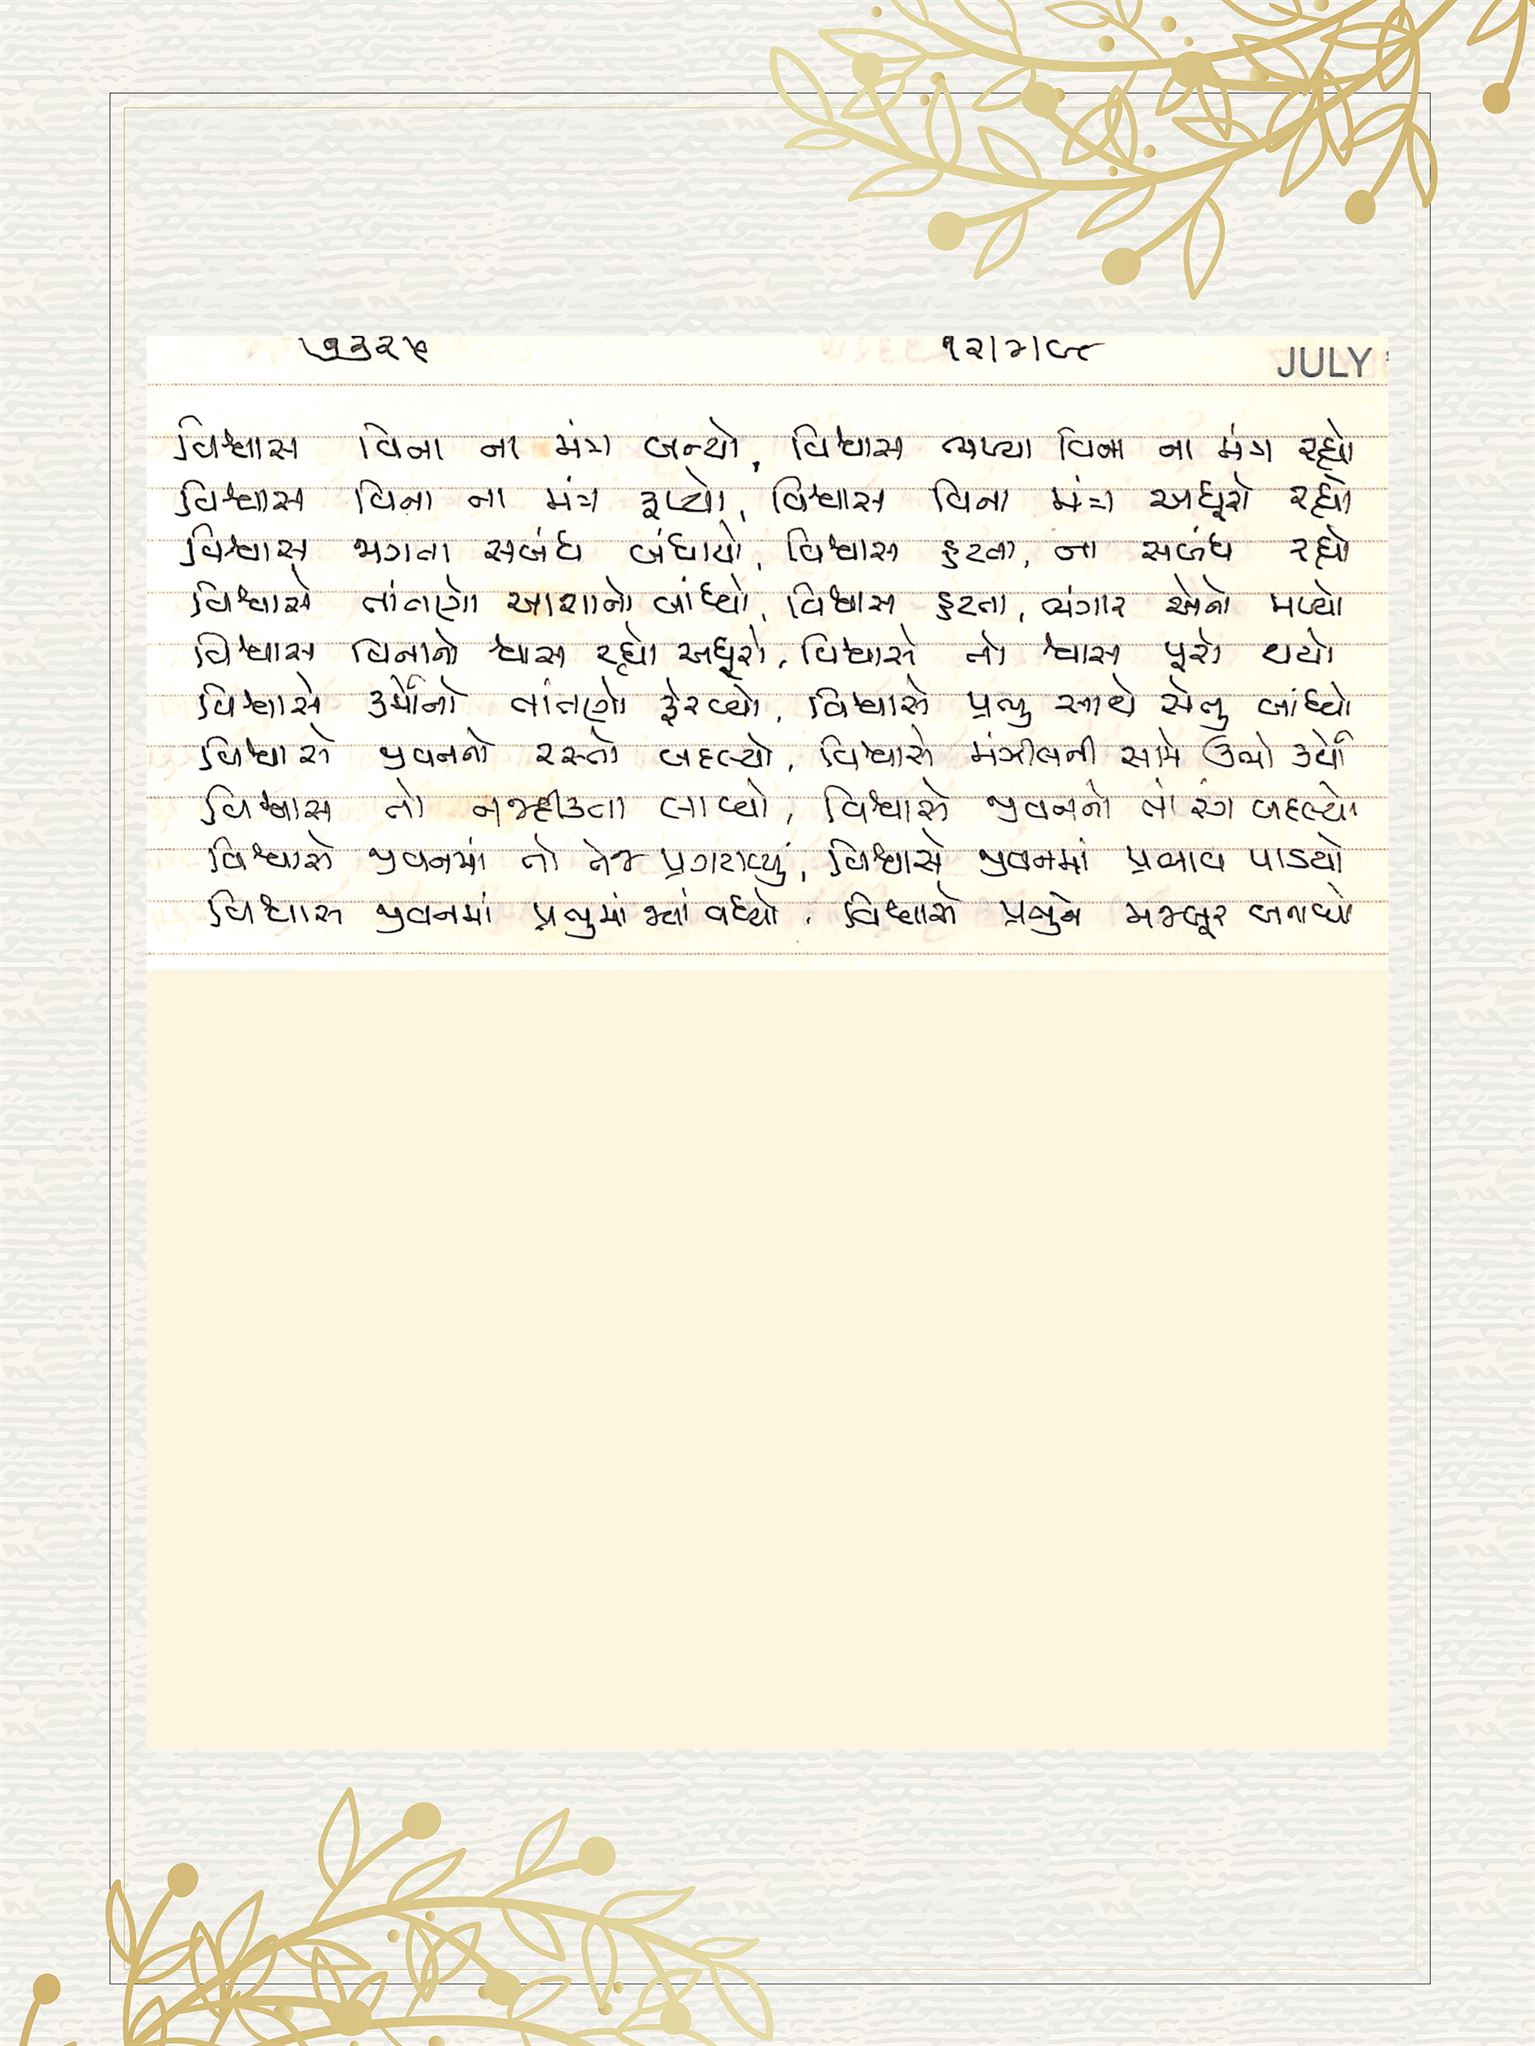 ૭૩૨૫ ૧૨/૪/૯૮ JULY
વિશ્વાસ વિના ના મંત્ર બન્યો, વિશ્વાસ વિના ના મંત્ર રહ્યો
વિશ્વાસ વિના ના મંત્ર રૂપ્યો, વિશ્વાસ વિના મંત્ર અધૂરો રહ્યો
વિશ્વાસ જાગતા સબંધ બંધાયો, વિશ્વાસ તુટતા, ના સબંધ રહ્યો
વિશ્વાસે તાંતણો આશાનો બાંધ્યો, વિશ્વાસ તુટતા, ભંગાર એનો મળ્યો
વિશ્વાસ વિનાનો શ્વાસ રહ્યો અધૂરો, વિશ્વાસે તો શ્વાસ પૂરો થયો
વિશ્વાસે કર્મોનો તાંતણો ફેરવ્યો, વિશ્વાસે પ્રભુ સાથે સેતુ બાંધ્યો
વિશ્વાસે જીવનનો રસ્તો બદલ્યો, વિશ્વાસે મંઝીલની સામે ઉભો કર્યો
વિશ્વાસ તો નજદીકતા લાવ્યો, વિશ્વાસે જીવનનો તો રંગ બદલ્યો
વિશ્વાસે જીવનમાં તો તેજ પ્રગટાવ્યું, વિશ્વાસે જીવનમાં પ્રભાવ પાડયો
વિશ્વાસ જીવનમાં પ્રભુમાં જ્યાં વધ્યો, વિશ્વાસે પ્રભુને મજબૂર બનાવ્યો